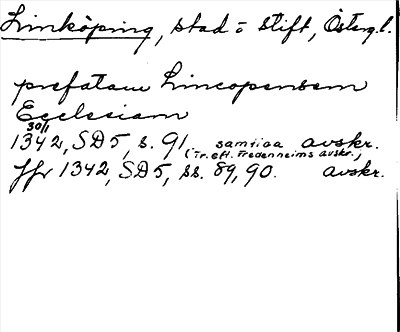 Linköping, stad o stift, Österg.l.
prefatam Lincopensem
Ecclesiam
30/1
1342, SD5, s. 91. samtida avskr.
(Tr. eft. Fredenheims avskr.)
Jfr 1342, SD5, ss. 89, 90. avskr.